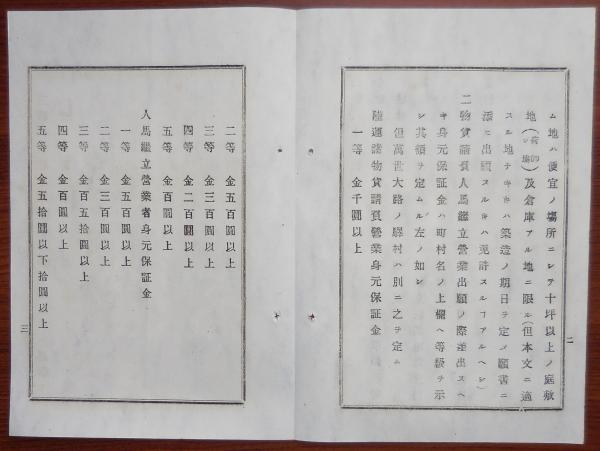 ム地ハ便宜ノ場所ニシテ十坪以上ノ庭敷
地(荷卸ロ場)及倉庫アル地ニ限ル(但本文ニ適
スル地ナキキハ築造ノ期日ヲ定メ願書ニ
添ヒ出願スルキハ免許スルヿアルヘシ)
二物貨請負人馬継立営業出願ノ際差出スヘ
キ身元保証金ハ町村名ノ上欄ヘ等級ヲ示
シ其額ヲ定ムル左ノ如シ
但萬世大路ノ驛村ハ別ニ之ヲ定ム
陸運諸物貨請負営業身元保証金
一等 金千圓以上
二
二等 金五百圓以上
三等 金三百圓以上
四等 金二百圓以上
五等 金百圓以上
人馬繼立營業者身元保証金
一等 金五百圓以上
二等 金三百圓以上
三等 金百五拾圓以上
四等 金百圓以上
五等 金五拾圓以下拾圓以上
三